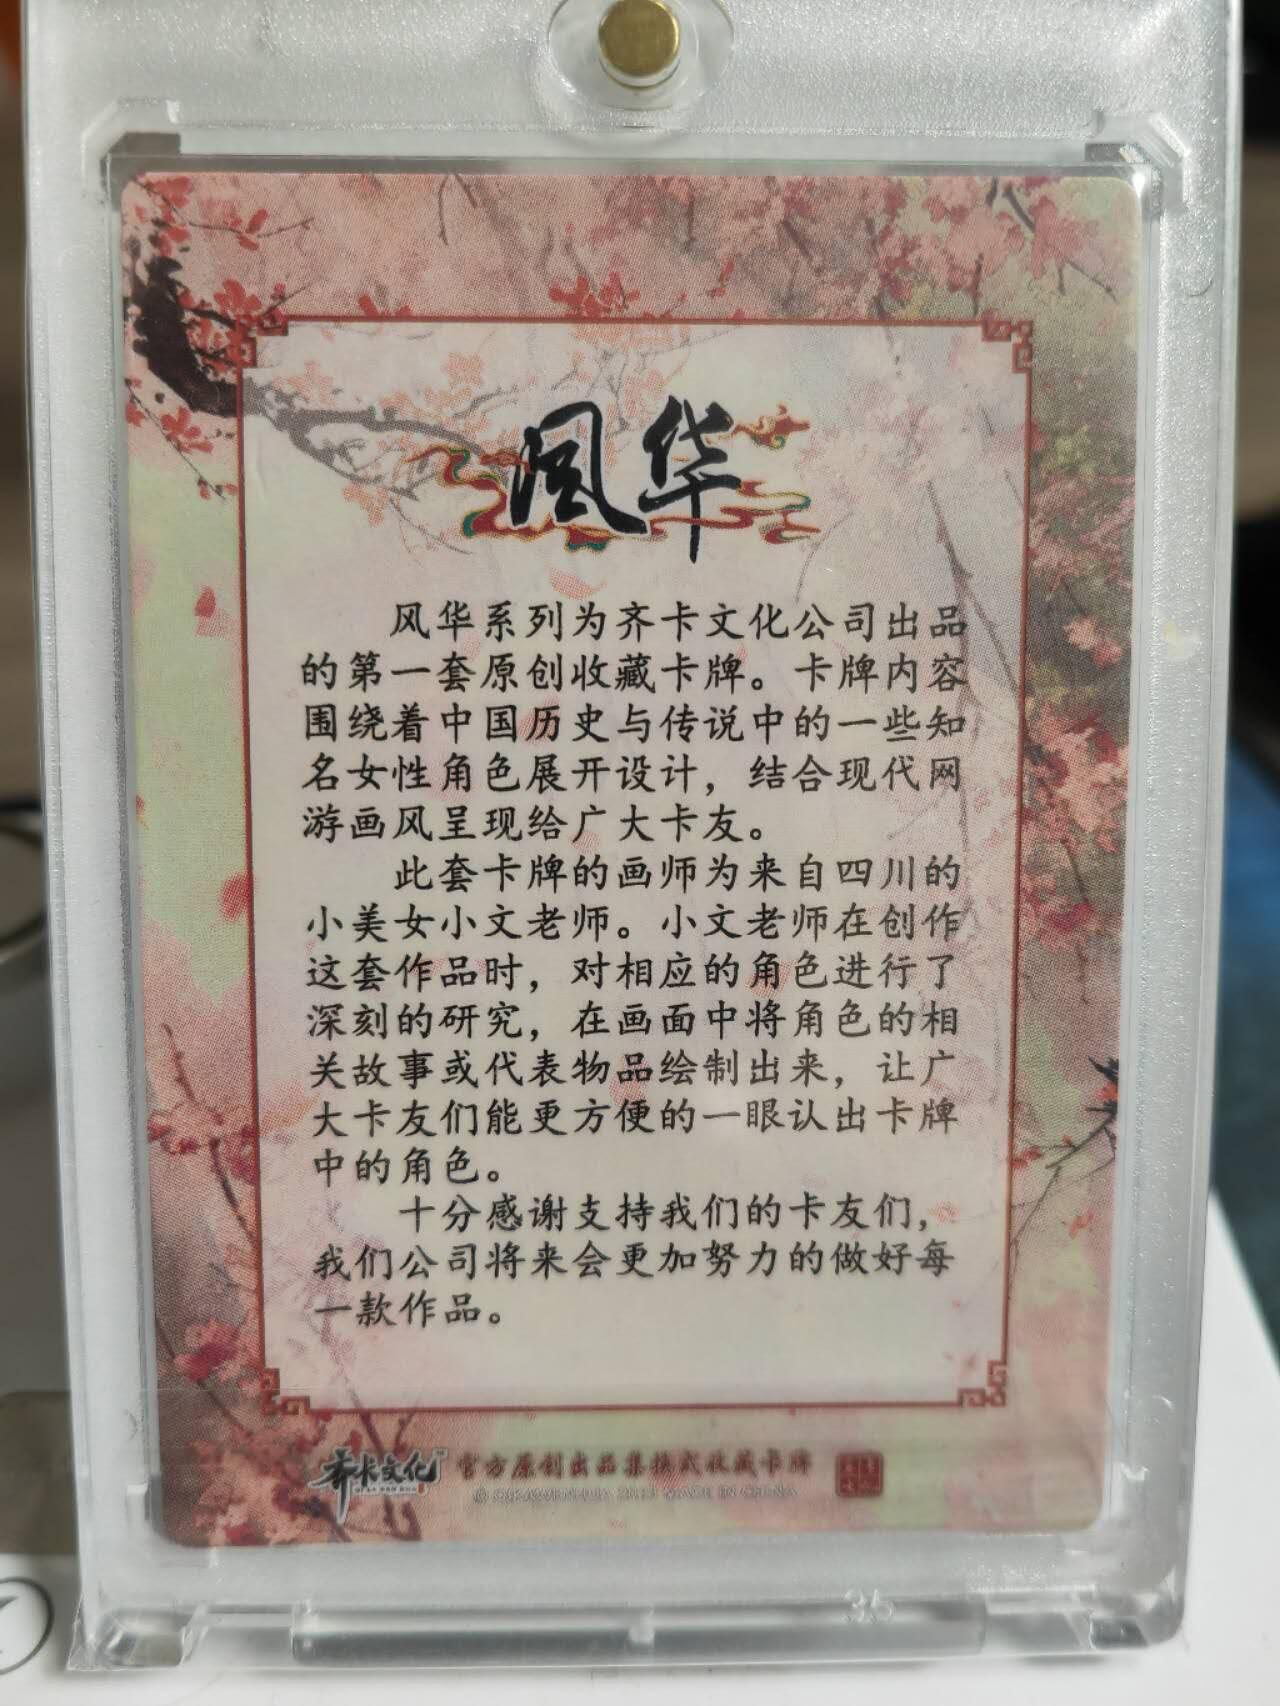 风华
风华系列为齐卡文化公司出品
的第一套原创收藏卡牌。卡牌内容
围绕着中国历史与传说中的一些知
名女性角色展开设计，结合现代网
游画风呈现给广大卡友。
此套卡牌的画师为来自四川的
小美女小文老师。小文老师在创作
这套作品时，对相应的角色进行了
深刻的研究，在画面中将角色的相
关故事或代表物品绘制出来，让广
大卡友们能更方便的一眼认出卡牌
中的角色。
十分感谢支持我们的卡友们，
我们公司将来会更加努力的做好每
一款作品。
齐卡文化 官方原创出品集换式收藏卡牌
MADE IN CHINA
35